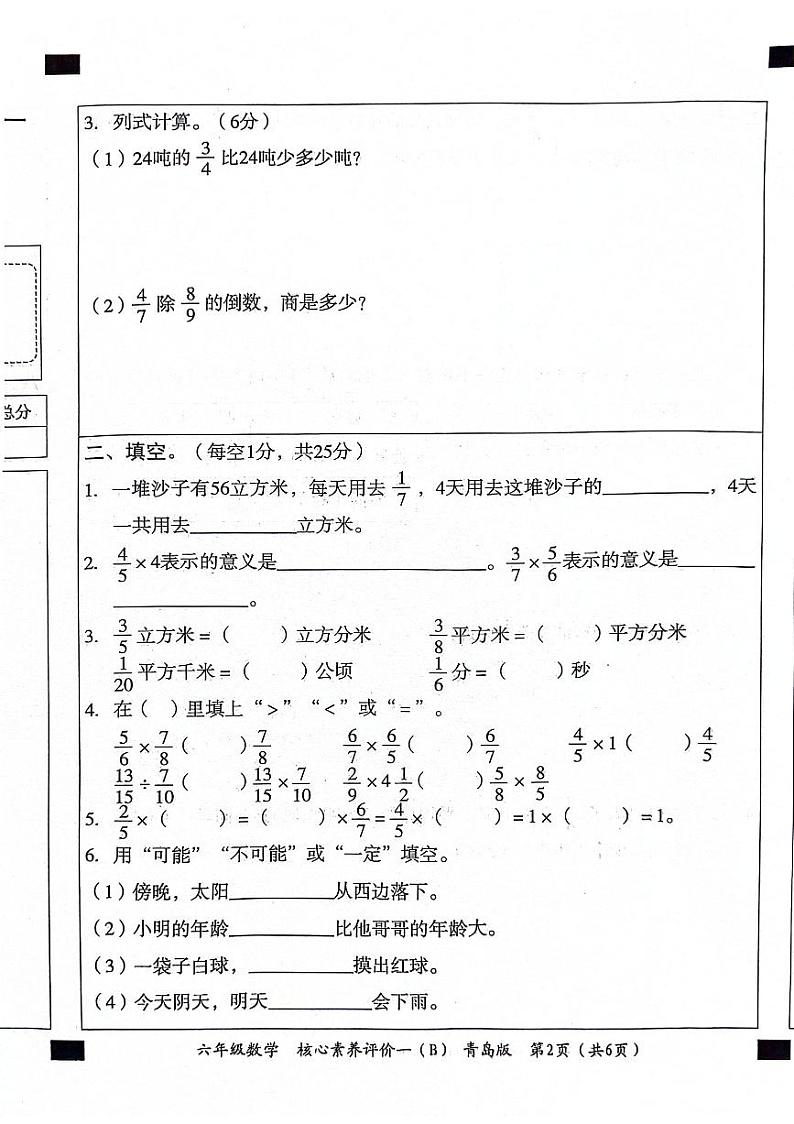 一
总分
3. 列式计算。（6分）
（1）24吨的 3/4 比24吨少多少吨？
（2）4/7 除 8/9 的倒数，商是多少？
二、填空。（每空1分，共25分）
1. 一堆沙子有56立方米，每天用去 1/7 ，4天用去这堆沙子的__________，4天
一共用去__________立方米。
2. 4/5 × 4表示的意义是____________________。3/7 × 5/6 表示的意义是_______
_____________。
3. 3/5 立方米 =（ ）立方分米 3/8 平方米 =（ ）平方分米
1/20 平方千米 =（ ）公顷 1/6 分 =（ ）秒
4. 在（ ）里填上“>”“<”或“=”。
5/6 × 7/8（ ）7/8 6/7 × 6/5（ ）6/7 4/5 × 1（ ）4/5
13/15 ÷ 7/10（ ）13/15 × 7/10 2/9 × 4 1/2（ ）5/8 × 8/5
5. 2/5 ×（ ）=（ ）× 6/7 = 4/5 ×（ ）= 1 ×（ ）= 1。
6. 用“可能”“不可能”或“一定”填空。
（1）傍晚，太阳__________从西边落下。
（2）小明的年龄__________比他哥哥的年龄大。
（3）一袋子白球，__________摸出红球。
（4）今天阴天，明天__________会下雨。
六年级数学 核心素养评价一（B） 青岛版 第2页（共6页）